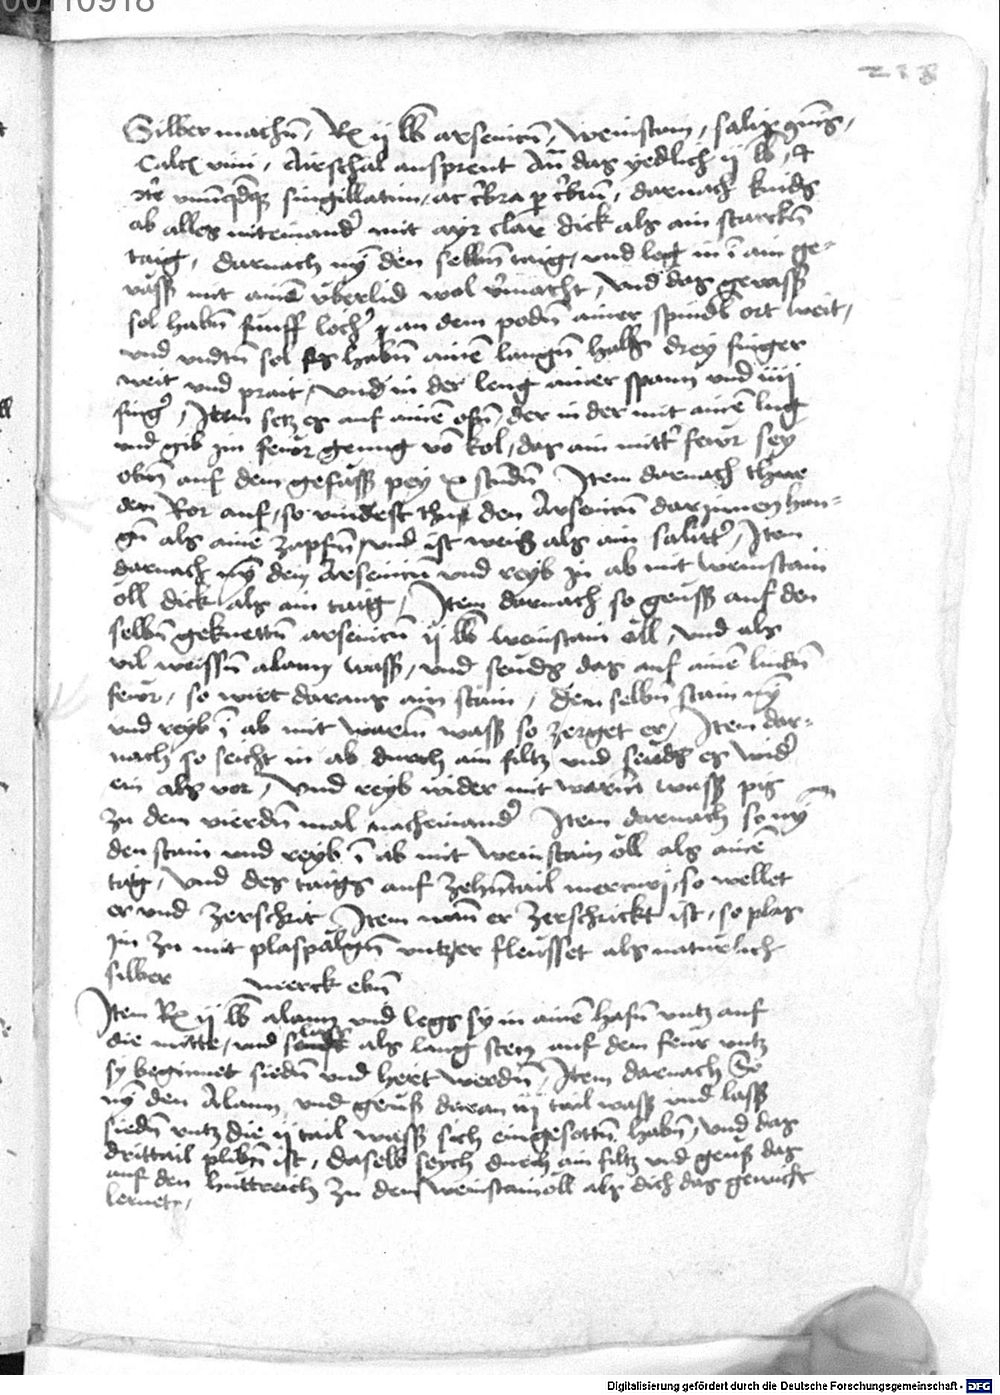 00110918
218
Silber machn̄, Rx ij lb arsenicū, weinstain, salis gm̄s,
Calcx vini, Airschal ausprent Aun̄ das yedlich ij lb, et
singillatim, ac darnach knids
ab alles miteinand' mit ayr clar dick als ain starckn̄
taig, darnach nȳ den selbn̄ taig, und leg in ī ain ge=
väss mit ainē überlid wol v'macht, und das gevass
sol habn̄ funff löch' an dem podn̄ ainer spindl ort weit,
und undtn̄ sol es habn̄ ainē langn̄ hals drey finger
weit und prait, und in der leng ainer spann und iiij
fing', Item setz es auf ainē ofn̄, der in der mit ainē lug
und gib im feuor genug vō kol, das ain mitt' feuor sey
obn̄ auf dem gefäss pey x stundn̄ Item darnach thue
den Ror auf, so vindest thu den Arsenicū darjnnen han=
gn̄ als ainē zapfn̄, und ist weis als ain salitt', Item
darnach nȳ den Arsenicū und reyb in ab mit weinstain
öll dick als ain taig, Item darnach so geuss auf den
selbn̄ geknettn̄ arsenicū ij lb weinstain öll, und als
vil weissn̄ alaun wass, und seuds das auf ainē lindn̄
feuor, so wirt daraus ain stain, den selbn̄ stain nȳ
und reyb ī ab mit warm̄ wass so zerget er, Item dar=
nach so seicht in ab durch ain filtz und seuds es wid'
ein als vor, und reyb wider mit warm̄ wass pis
zu dem vierdn̄ mal nacheinand' Item darnach so nȳ
den stain und reyb ī ab mit weinstain öll als ainē
taig, und des taigs auf zehn̄tail mercurj, so wellet
er und zerschrit Item wan̄ er zerschrickt ist, so plas
im zu mit plaspälgn̄ untz er fleusset als naturlich
silber merck ebn̄
Item Rx ij lb alaun und legs sy in ainē hafn̄ untz auf
die mitte, und lass als lang sten auf dem feur untz
sy beginnet siedn̄ und hert werdn̄, Item darnach So
nȳ den Alaun, und geuss daran iij tail wass und lass
siedn̄ untz die ij tail wass sich eingesottn̄ habn̄, und das
drittail plibn̄ ist, daselb seych durch ain filtz und geuss das
auf den huttreich zu dem weinstainöll als dich das gewicht
lernet,
Digitalisierung gefördert durch die Deutsche Forschungsgemeinschaft - DFG